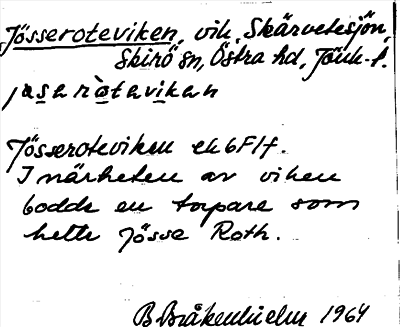 Jösseroteviken, vik, Skärvetesjön,
Skirö sn, Östra hd, Jönk. l.
jɷsarɷtavikan
Jösseroteviken ek 6F1f.
I närheten av viken
bodde en torpare som
hette Jösse Roth.
B Bråkenhielm 1964